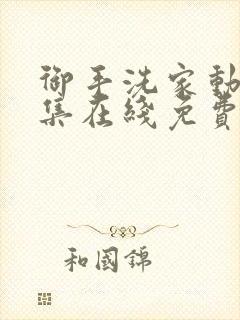 御手洗家動
集在綫免費
和國錦